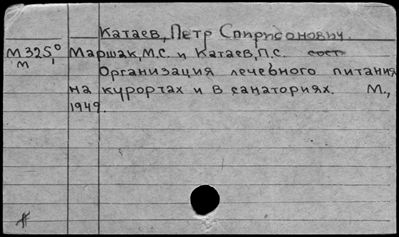 Катаев, Петр Спиридонович.
М325⁰ Маршак, М.С. и Катаев, П.С. сост
м, Организация лечебного питания
на курортах и в санаториях. М.,
1949.